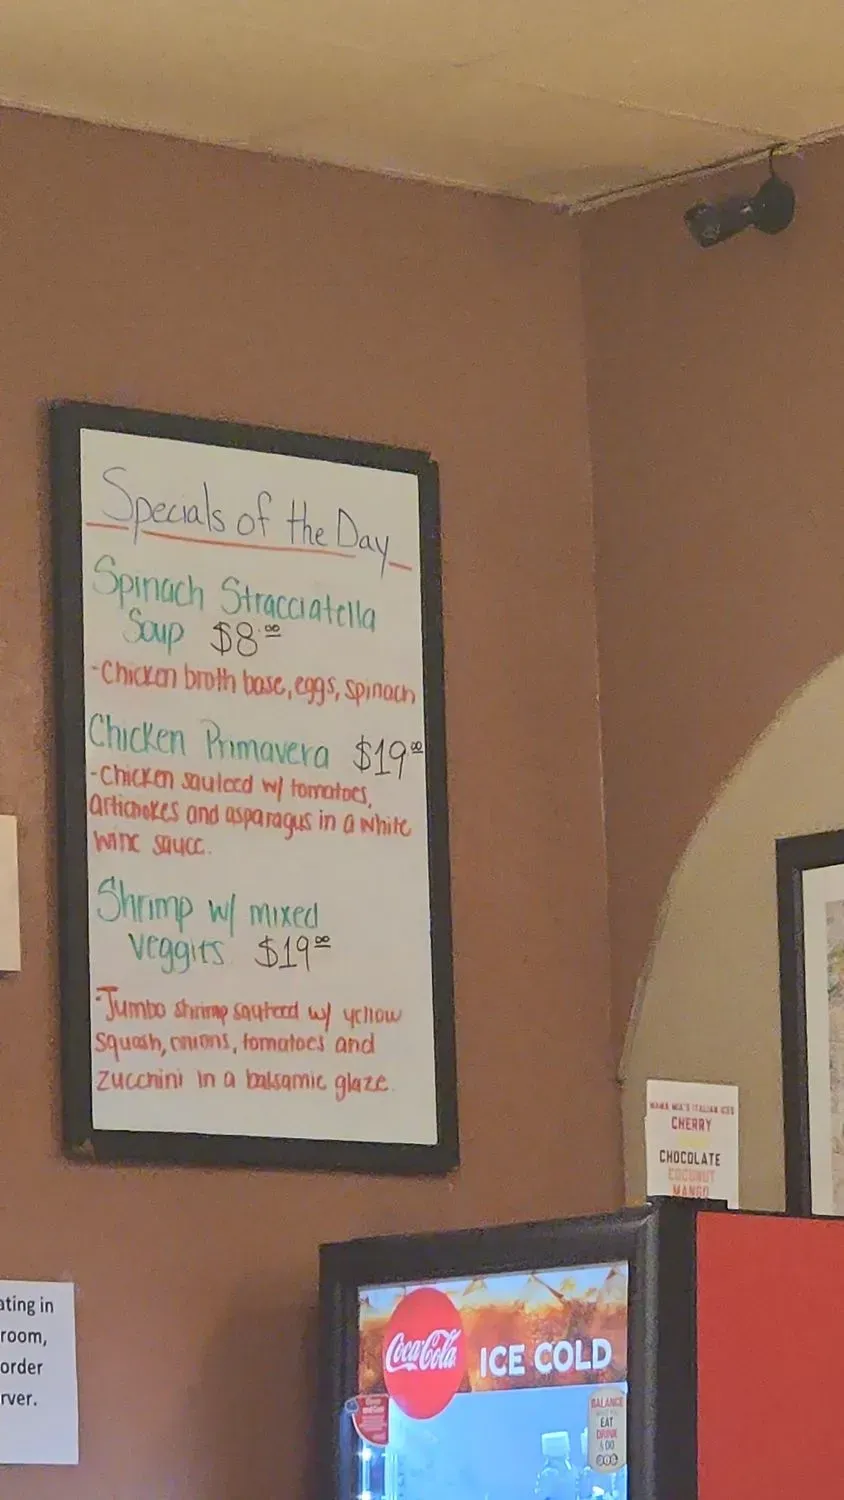 Specials of the Day
Spinach Stracciatella
Soup $8.00
-Chicken broth base, eggs, spinach
Chicken Primavera $19.00
-Chicken sauteed w/ tomatoes,
artichokes and asparagus in a white
wine sauce.
Shrimp w/ mixed
veggies $19.00
-Jumbo shrimp sauteed w/ yellow
squash, onions, tomatoes and
zucchini in a balsamic glaze.
MAMA MIA'S ITALIAN ICES
CHERRY
CHOCOLATE
COCONUT
MANGO
ating in
room,
order
rver.
Coca-Cola
ICE COLD
BALANCE
EAT
DRINK
& DO